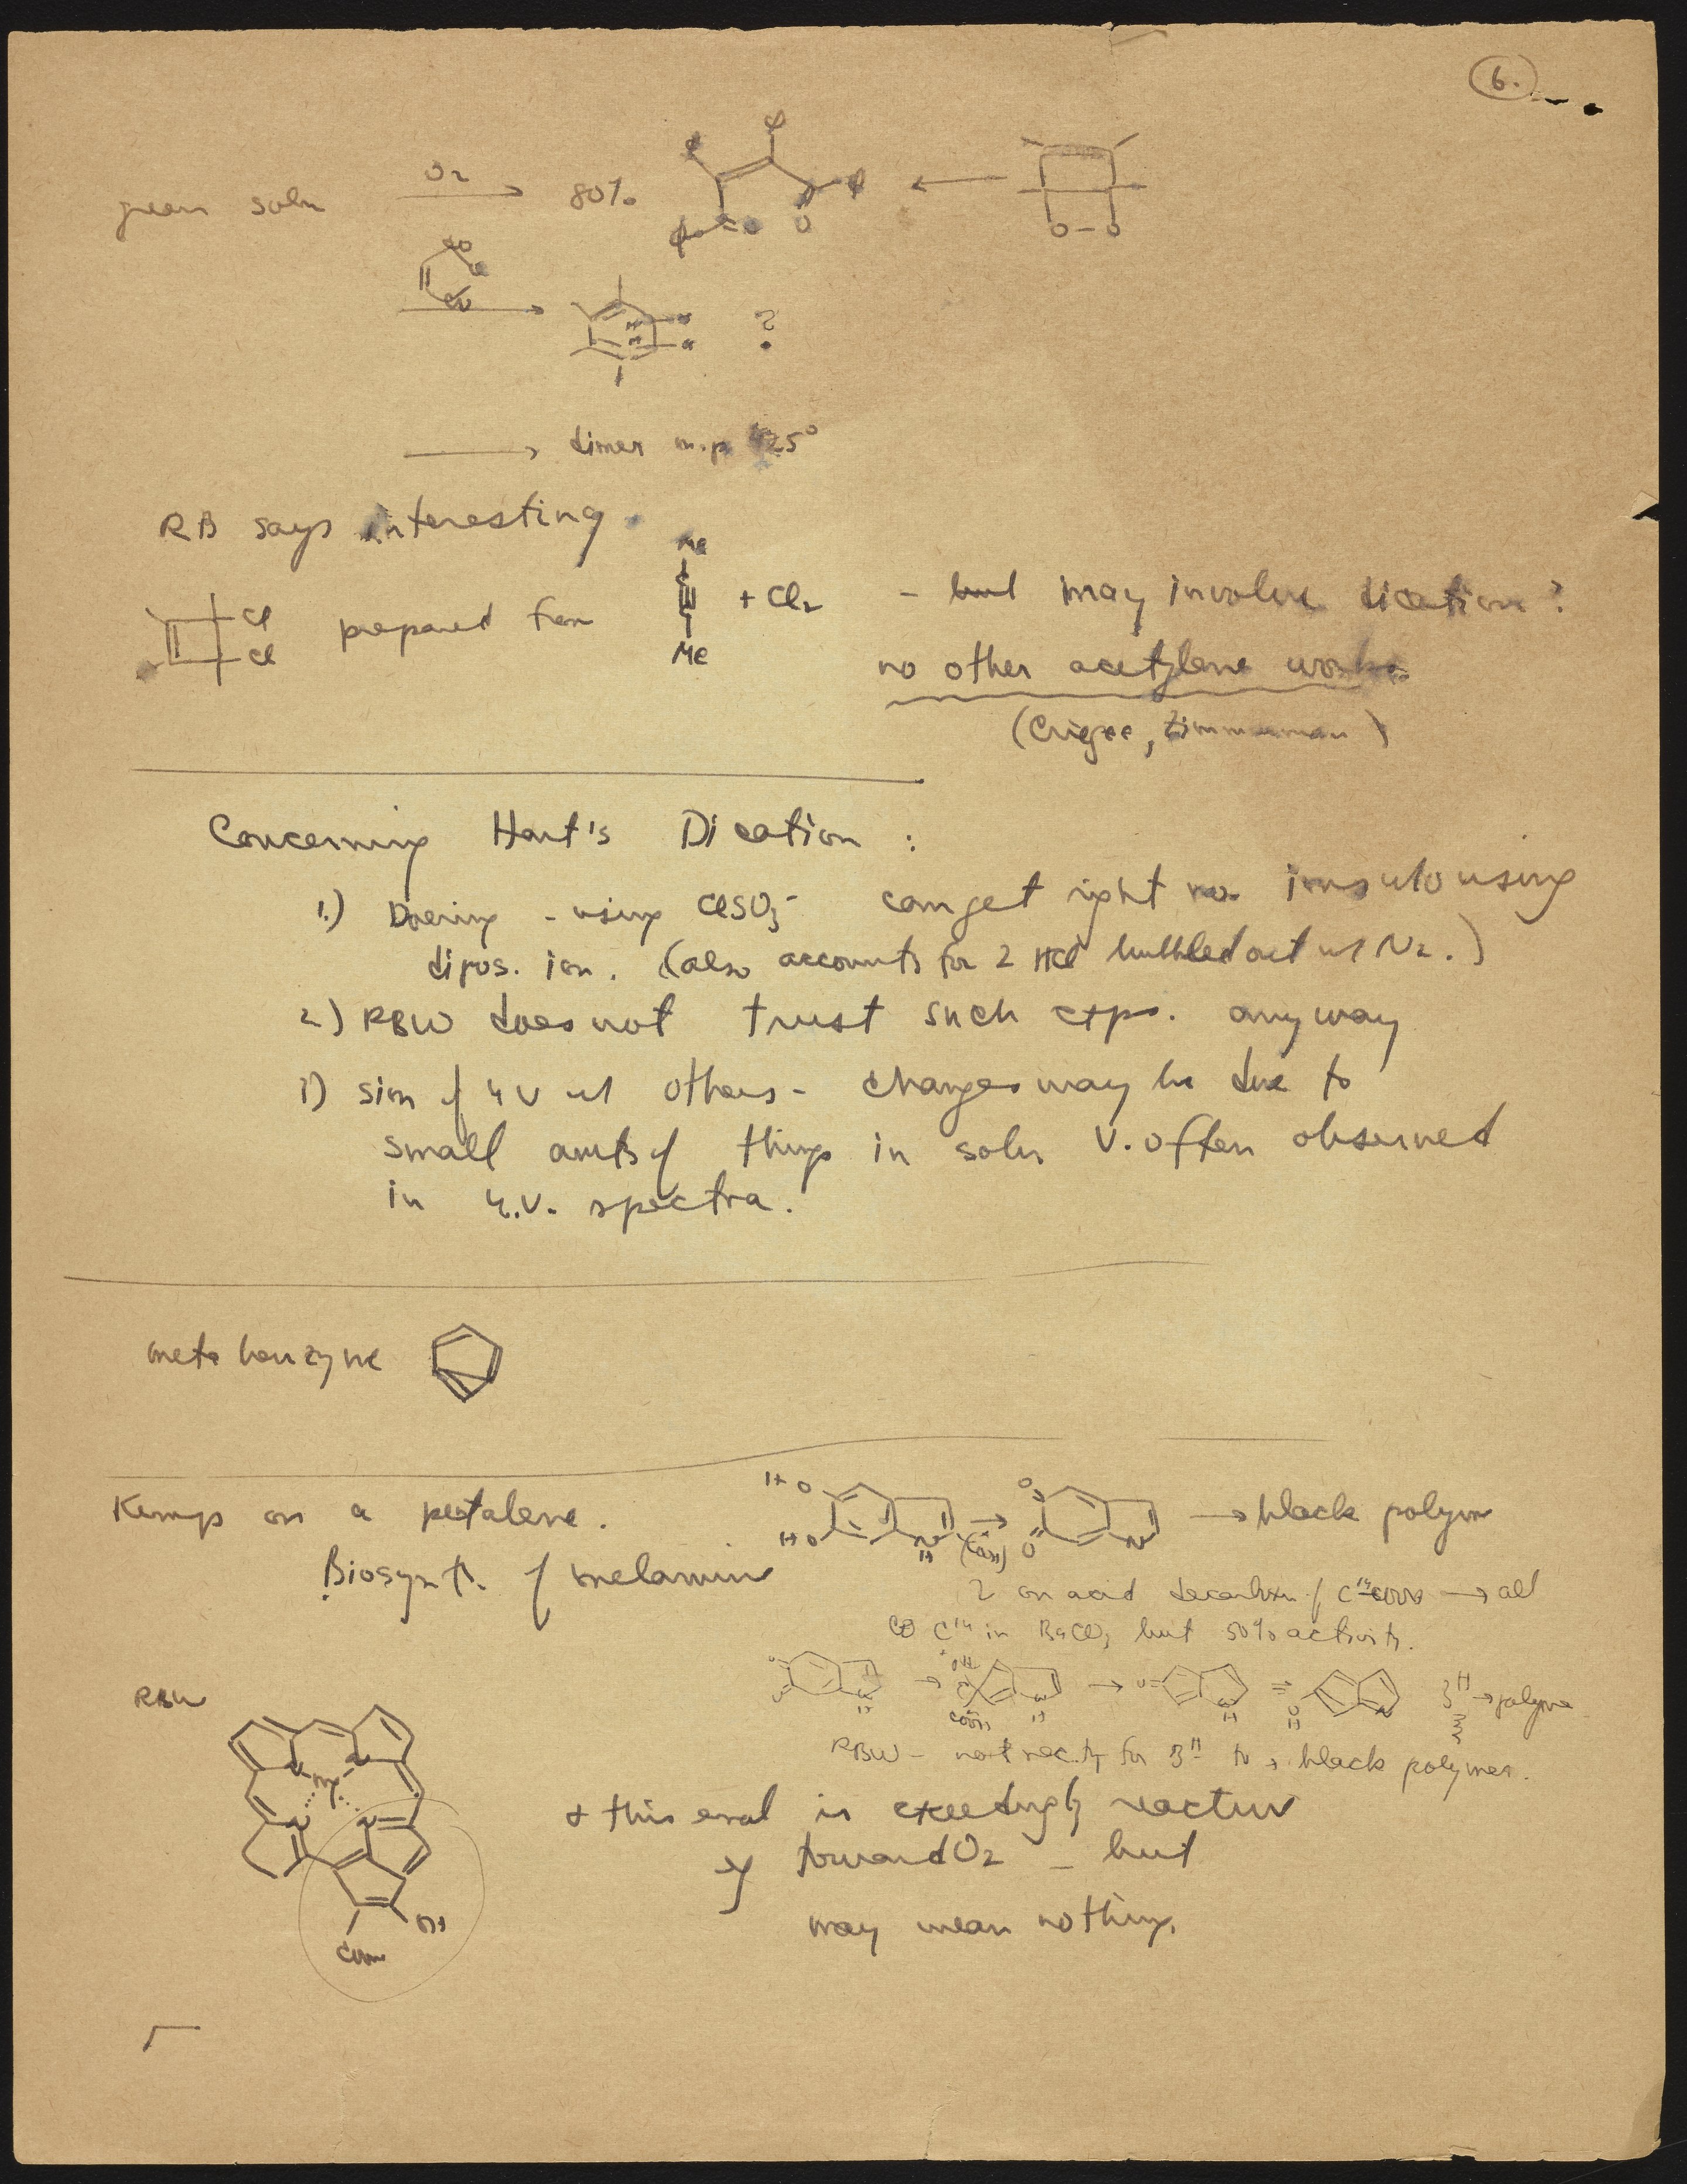 6.
green soln O2 → 80% ←
O-O
?
→ dimer m.p. 425°
RB says interesting.
Cl
Cl
prepared from
Me
C
C
Me
+ Cl2 - but may involve dication?
no other acetylene works
(Criegee, Zimmerman)
Concerning Hart's Dication :
1.) Doering - using ClSO3- can get right no. ions w/o using
dipos. ion. (also accounts for 2 HCl bubbled out w/ N2.)
2) RBW does not trust such expts. anyway
3) sim of u v w/ others - changes may be due to
small amts of things in soln v. often observed
in u.v. spectra.
meta benzyne
Kemp on a pentalene.
HO
HO
N
H
(COOH)
→
O
O
N
→ black polym
Biosynth. of melamin
2 on acid decarboxn of C14 COOH → all
C14 in BaCO3 but 50% activity.
OH
COOH
N
H
→ polyme
RBW - not nec. ty for 3H to → black polymer.
RBW
N
N
Mg
N
N
OH
COOMe
& this enol is exceedingly reactive
toward O2 - but
may mean nothing.